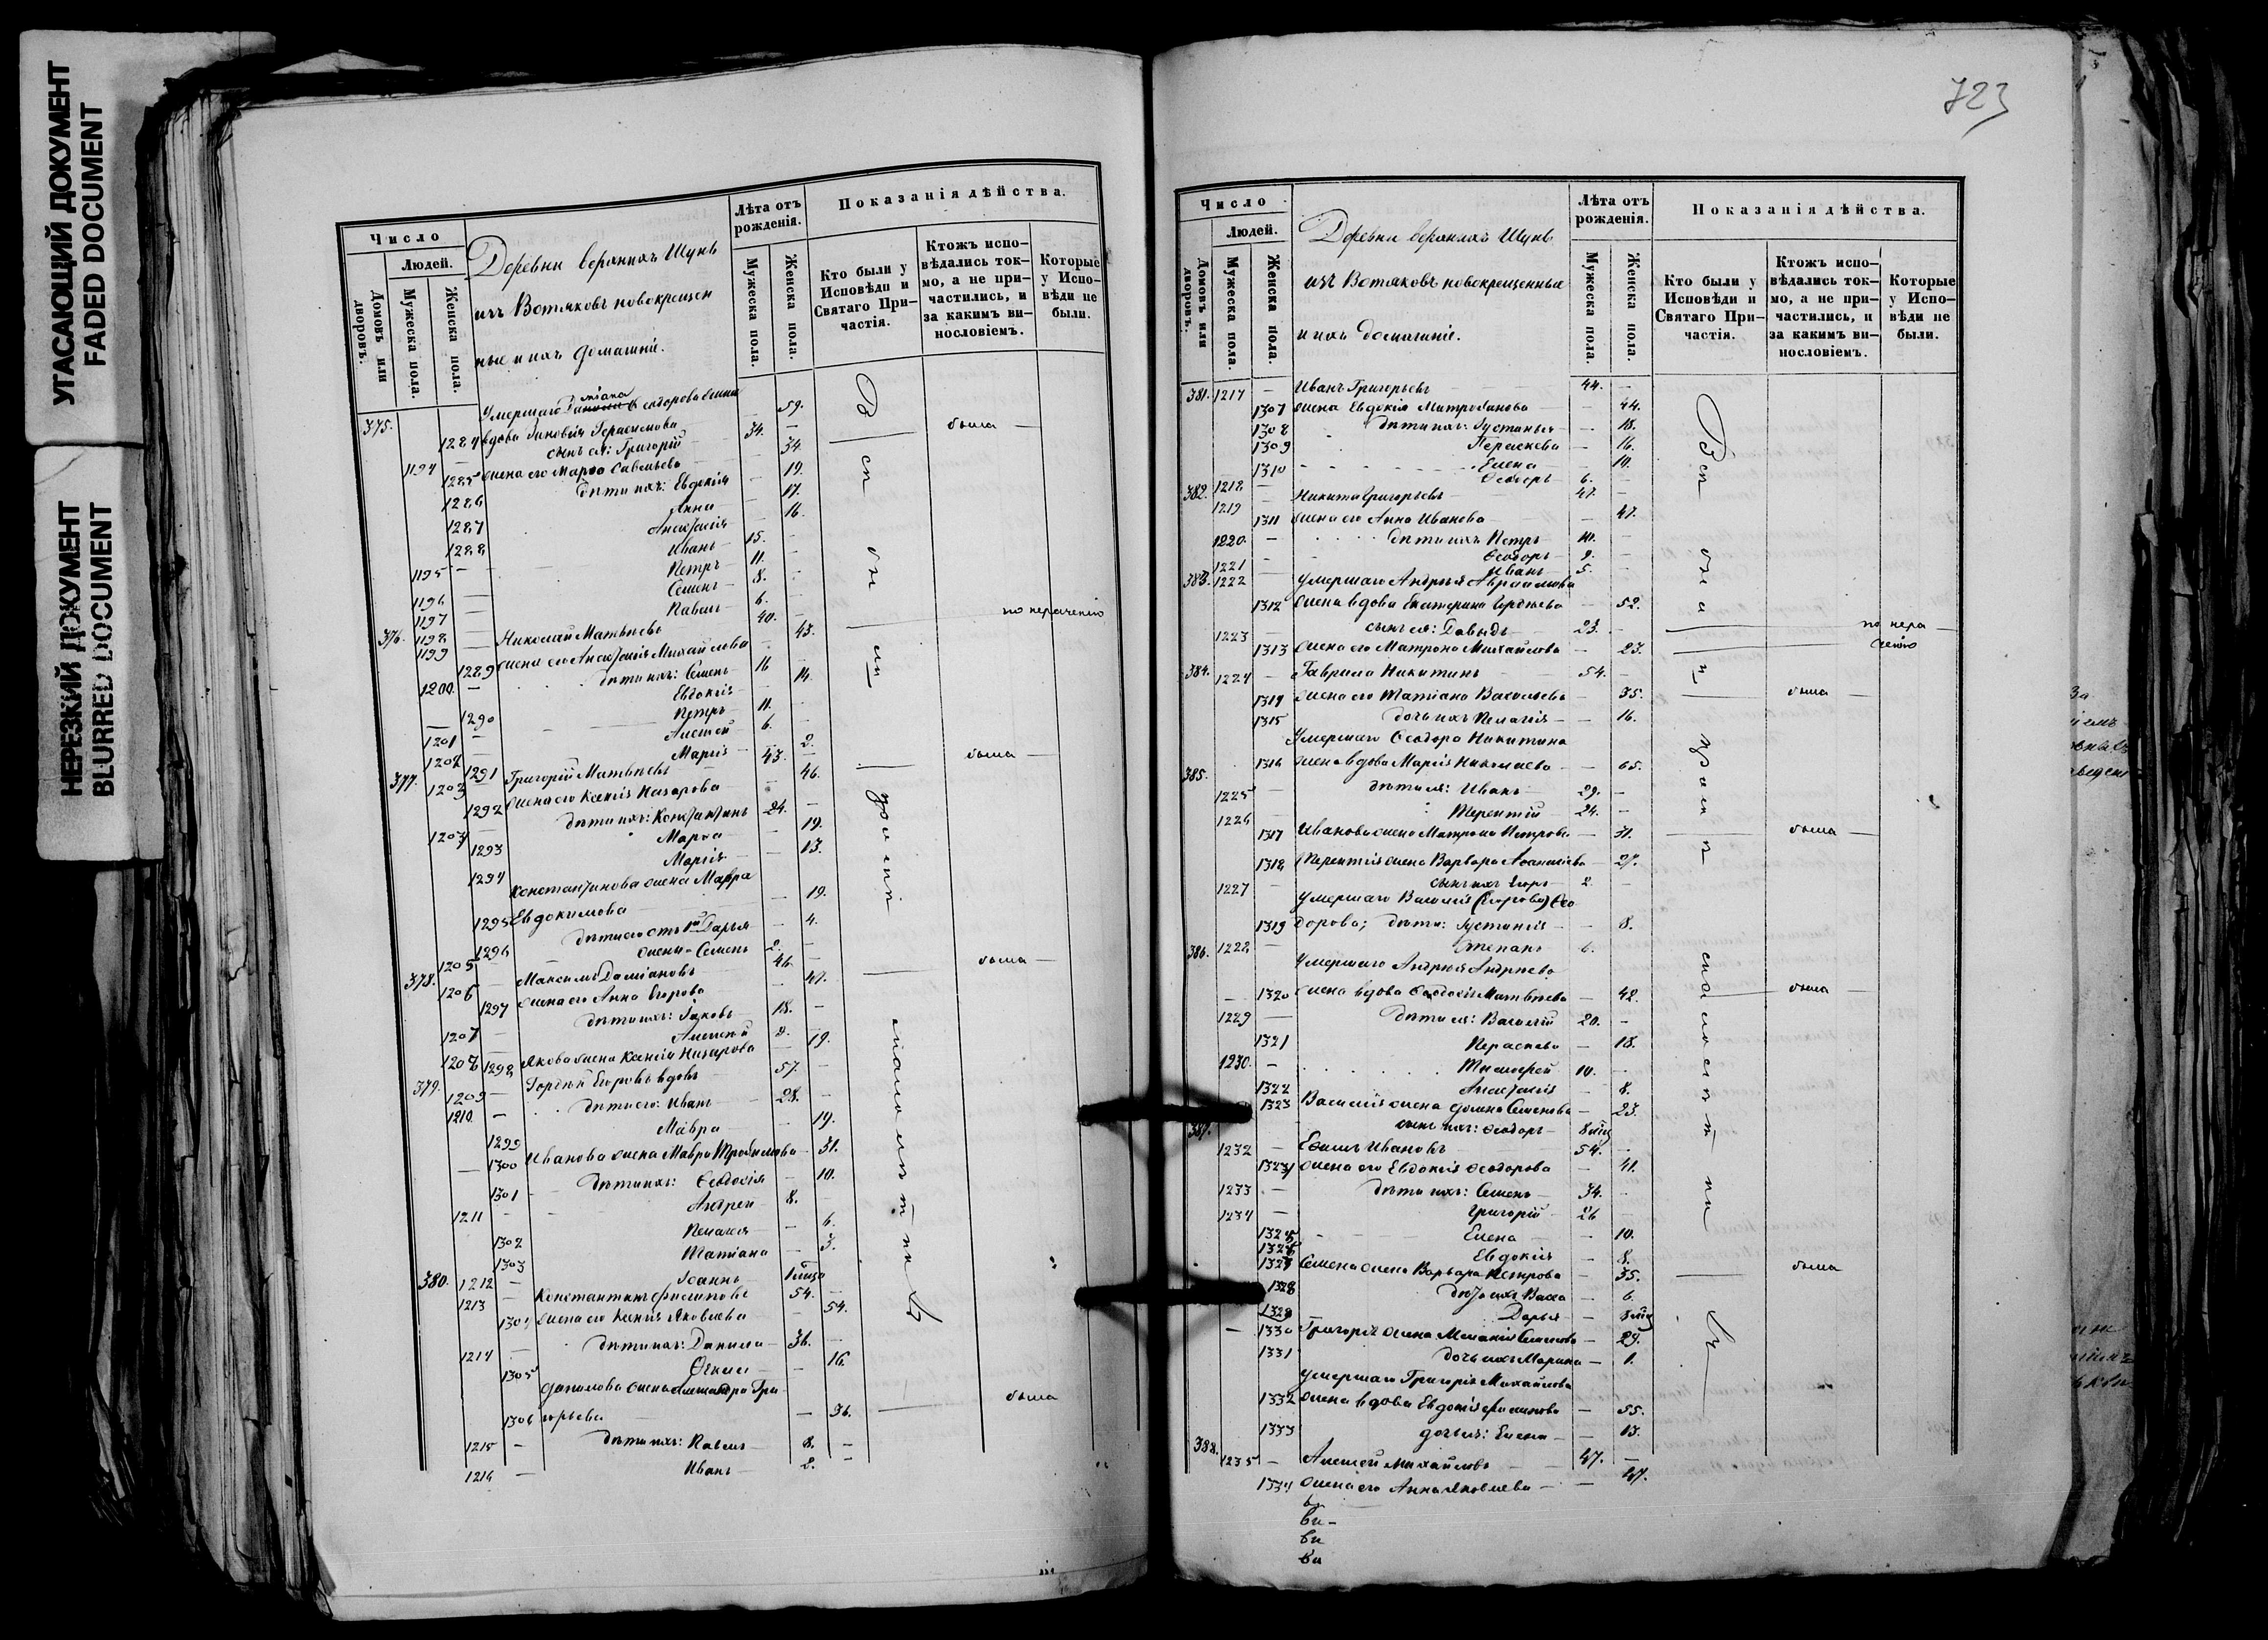 УГАСАЮЩИЙ ДОКУМЕНТ
FADED DOCUMENT
НЕРЕЗКИЙ ДОКУМЕНТ
BLURRED DOCUMENT
Число
Людей.
Домовъ или дворовъ.
Мужеска пола.
Женска пола.
Деревни верхнихъ Шунь
изъ Вотяковъ новокрещен
ные и ихъ домашніе.
Лѣта отъ рожденія.
Мужеска пола.
Женска пола.
Показанія дѣйства.
Кто были у Исповѣди и Святаго Причастія.
Ктожъ исповѣдались токмо, а не причастились, и за какимъ винословіемъ.
Которые у Исповѣди не были.
375. Умершаго Даміана Ѳеодорова жена
1284 вдова Зиновія Герасимова — 59.
1194 — сынъ ея: Григорій 34. —
1285 жена его Марѳа Савельева — 34. была
1286 дѣти ихъ: Евдокія — 19.
1287 Анна — 17.
1288 Анастасія — 16.
1195 — Иванъ 15. —
1196 — Петръ 11. —
1197 — Семенъ 8. —
1198 — Павелъ 6. —
376. 1199 — Николай Матвѣевъ 40. — по нераченію
1289 жена его Анастасія Михайлова — 43.
1200. — дѣти ихъ: Семенъ 16
1290 Евдокія — 14.
1201 — Петръ 11. —
1202 — Алексей 6. —
1291 Марія — 2.
377. 1203 Григорій Матвѣевъ 43. — была
1292 жена его Ксенія Назарова — 46.
1204 — дѣти ихъ: Константинъ 24. —
1293 Марѳа — 19.
1294 Марія — 13.
Константинова жена Мавра
1295 Евдокимова — 19.
1296 дѣти его отъ 1й Дарья — 4.
1205 жены — Семенъ 2. —
378. 1206 — Максимъ Даміановъ 46. — была
1297 жена его Анна Егорова — 47.
1207 — дѣти ихъ: Яковъ 18. —
1208 Алексей 2. —
1298 Якова жена Ксенія Назарова — 19.
379. 1209 — Гордѣй Егоровъ вдовъ 57. —
1210. — дѣти его: Иванъ 28. —
1299 Мавра — 19.
1300 Иванова жена Мавра Трофимова — 31.
1301 дѣти ихъ: Ѳеодосія — 10.
1211 — Андрей 8. —
1302 Пелагія — 6.
1303 Татіана — 3.
1212 — Іоаннъ
380. 1213 — Константинъ Филиповъ 54. —
1304 жена его Ксенія Яковлева — 54.
1214 — дѣти ихъ: Данила 36. —
1305 Ѳекла — 16.
Данилова жена Александра Гри
1306 горьева — 36. была
1215 — дѣти ихъ: Павелъ 8. —
1216 — Иванъ 2. —
Вси были у ради малолѣтнихъ
723
Число
Людей.
Домовъ или дворовъ.
Мужеска пола.
Женска пола.
Деревни верхнихъ Шунь
изъ Вотяковъ новокрещенные
и ихъ домашніе.
Лѣта отъ рожденія.
Мужеска пола.
Женска пола.
Показанія дѣйства.
Кто были у Исповѣди и Святаго Причастія.
Ктожъ исповѣдались токмо, а не причастились, и за какимъ винословіемъ.
Которые у Исповѣди не были.
381. 1217 — Иванъ Григорьевъ 44. —
1307 жена Евдокія Митрофанова — 44.
1308 дѣти ихъ: Іустинья — 18.
1309 Параскева — 16.
1310 Елена — 10.
1218 — Ѳеодоръ 6. —
382. 1219 Никита Григорьевъ 47. —
1311 жена его Анна Иванова — 47.
1220. — дѣти ихъ Петръ 10. —
1221 — Ѳеодоръ 9. —
1222 Иванъ 5. —
383. Умершаго Андрея Авраамова
1312 жена вдова Екатерина Гордѣева — 52.
1223 — сынъ ея: Давыдъ 23. — по нера
1313 жена его Матрона Михайлова — 23. ченію
384. 1224 — Гаврила Никитинъ 54. —
1314 жена его Татіана Васильева — 35. была
1315 дочь ихъ Пелагія — 16.
Умершаго Ѳеодора Никитина
385. 1316 жена вдова Марія Николаева — 65.
1225 — дѣти ея: Иванъ 29. —
1226 Терентій 24. —
1317 Иванова жена Матрона Петрова — 31. была
1318 Терентія жена Варвара — 27.
1227 — сынъ ихъ Егоръ 2. —
Умершаго Василія (Егорова) Ѳео
1319 дорова; дѣти: Іустинія — 8.
386. 1228 — Степанъ 6. —
Умершаго Андрея Андреева
1320 жена вдова Ѳеодосія Матвѣева — 42. была
1229 — дѣти ея: Василій 20. —
1321 Параскева — 18.
1230. — Тимоѳей 10. —
1322 Анастасія — 8.
1323 Василія жена Домна Семенова — 23.
387. сынъ ихъ: Ѳеодоръ
1232 — Ефимъ Ивановъ 54. —
1324 жена его Евдокія Ѳеодорова — 41.
1233 — дѣти ихъ: Семенъ 34. —
1234 — Григорій 26 —
1325 Елена — 10.
1326 Евдокія — 8.
1327 Семена жена Варвара Петрова — 35. была
1328 дѣти ихъ Васса — 6.
1329 Дарья —
1330 Григорія жена Меланія Семенова — 29.
1331 дочь ихъ Марина — 1.
Умершаго Григорія Михайлова
1332 жена вдова Евдокія Филипова — 55.
1333 дочь ихъ: Елена — 13.
388. 1235 — Алексей Михайловъ 47. —
1334 жена его Анна Яковлева — 47.